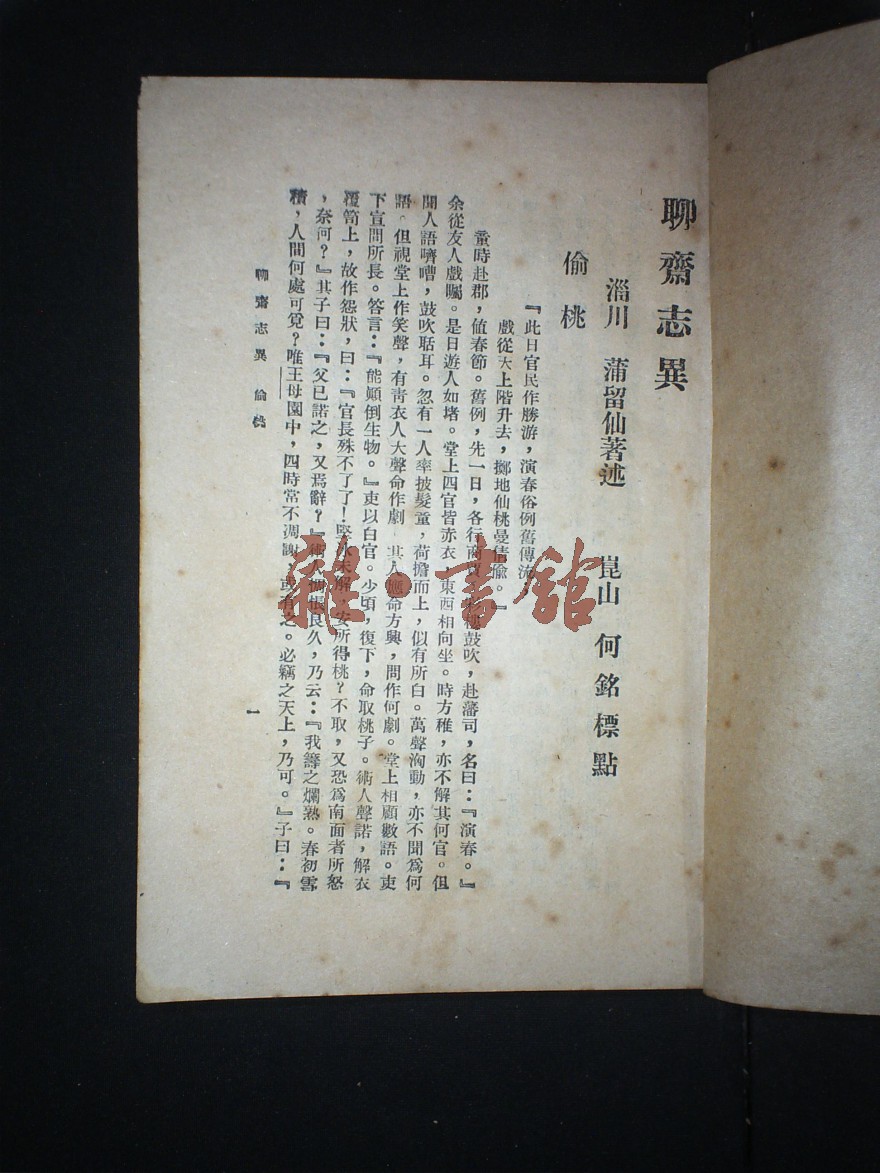 聊齋志異
淄川 蒲留仙著述 崑山 何銘標點
偷桃
『此日官民作勝游，演春俗例舊傳流
戲從大上階升去，擲地仙桃曼倩隃。』
童時赴郡，値春節。舊例，先一日，各行商賈 鼓吹，赴藩司，名曰：『演春。』
余從友人戲矚。是日遊人如堵。堂上四官皆赤衣 東西相向坐。時方稚，亦不解其何官。但
聞人語嚌嘈，鼓吹聒耳。忽有一人率披髮童，荷擔而上，似有所白。萬聲洶動，亦不聞爲何
語。但視堂上作笑聲，有靑衣人大聲命作劇 其人應命方興，問作何劇。堂上相顧數語。吏
下宣問所長。答言：『能顚倒生物。』吏以白官。少頃，復下，命取桃子。術人聲諾，解衣
覆笥上，故作怨狀，曰：『官長殊不了了！堅冰未解，安所得桃？不取，又恐爲南面者所怒
，奈何？』其子曰：『父已諾之，又焉辭？』術人惆悵良久，乃云：『我籌之爛熟。春初雪
積，人間何處可覓？唯王母園中，四時常不凋謝，或有之。必竊之天上，乃可。』子曰：『
聊齋志異 偷桃
一
雜·書舘